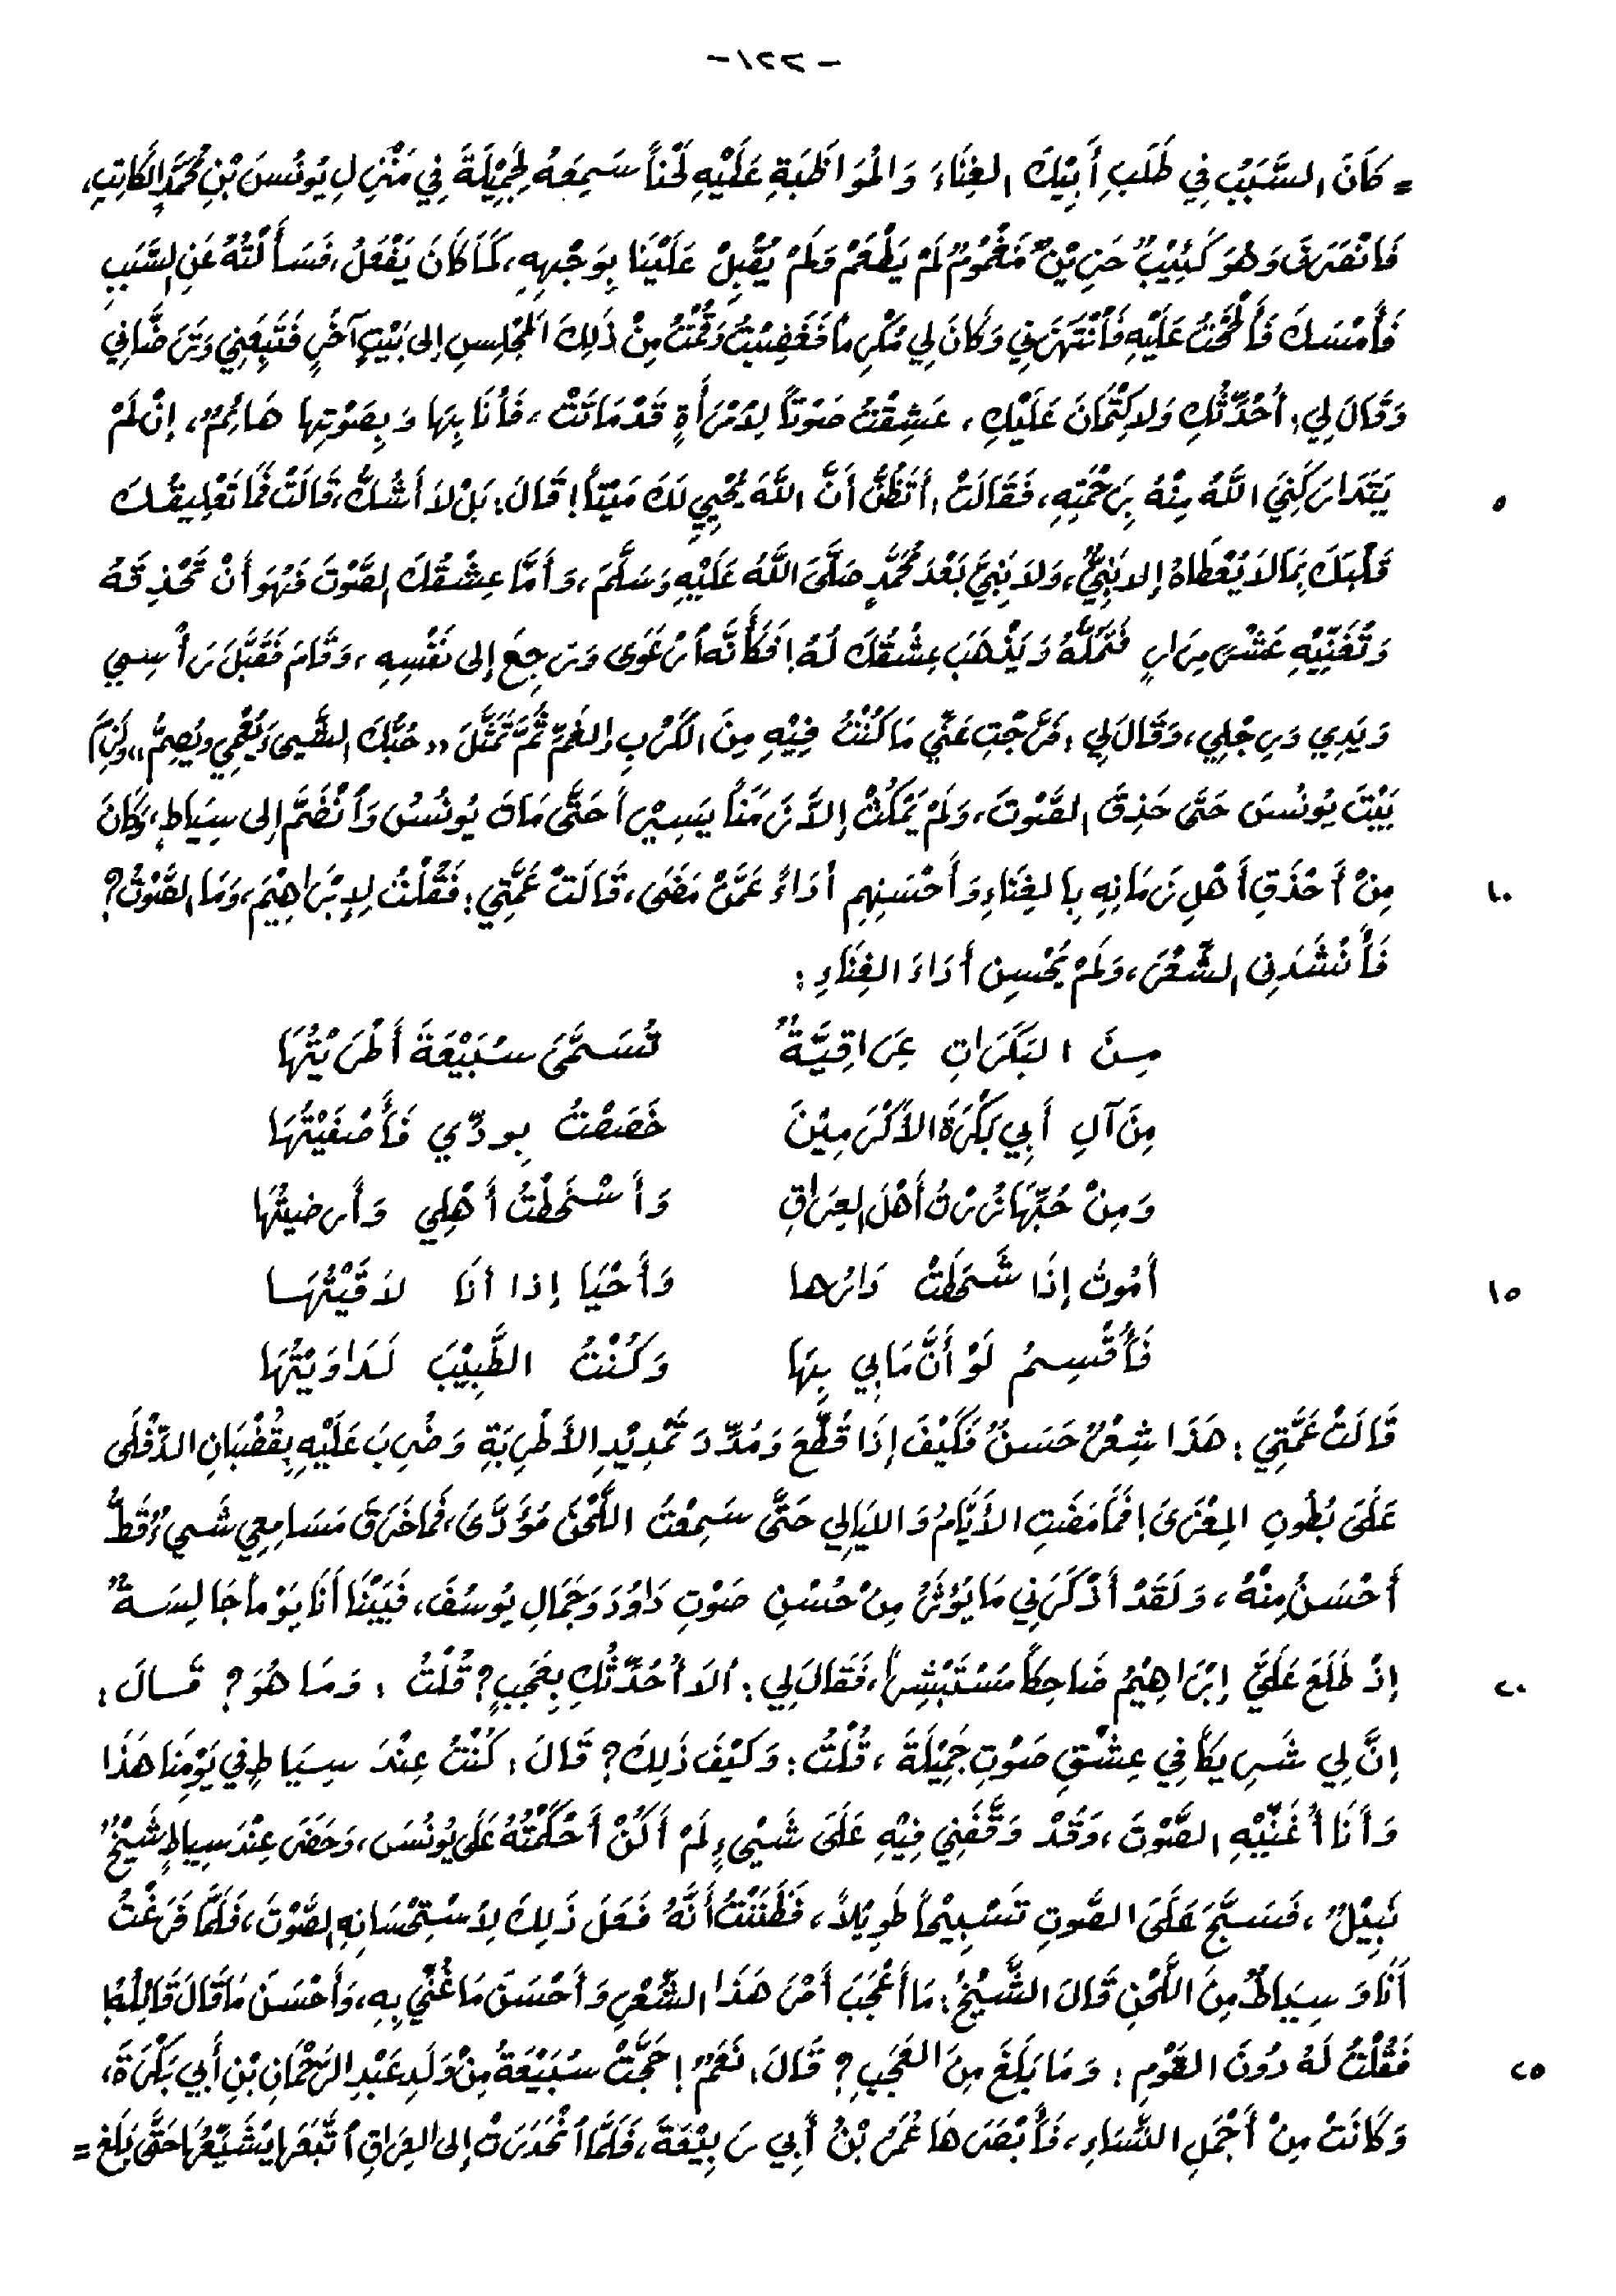 - ٢٢١ -
= كَانَ السَّبَبُ فِي طَلَبِ أَبِيْكَ الغِنَاءَ وَالْمُوَاظَبَةِ عَلَيْهِ لَحْناً سَمِعَهُ لِجَمِيْلَةَ فِي مَنْزِلِ يُونُسَ بْنِ مُحَمَّدٍ الكَاتِبِ،
فَانْصَرَفَ وَهُوَ كَئِيْبٌ حَزِيْنٌ مَغْمُومٌ لَمْ يَطْعَمْ وَلَمْ يُقْبِلْ عَلَيْنَا بِوَجْهِهِ، كَمَا كَانَ يَفْعَلُ، فَسَأَلْتُهُ عَنِ السَّبَبِ
فَأَمْسَكَ فَأَلْحَحْتُ عَلَيْهِ فَأَنْتَهَرَنِي وَكَانَ لِي مُكْرِماً فَغَضِبْتُ وَقُمْتُ مِنْ ذَلِكَ الْمَجْلِسِ إلى بَيْتٍ آخَرٍ فَتَبِعَنِي وَتَرَضَّانِي
وَقَالَ لِي: أُحَدِّثُكِ وَلاَ كِتْمَانَ عَلَيْكِ، عَشِقْتُ صَوْتاً لِامْرَأَةٍ قَدْ مَاتَتْ، فَأَنَا بِهَا وَبِصَوْتِهَا هَائِمٌ، إنْ لَمْ
يَتَدَارَكَنِيَ اللَّهُ مِنْهُ بِرَحْمَتِهِ، فَقَالَتْ: أَتَظُنُّ أَنَّ اللَّهَ يُحْيِي لَكَ مَيْتاً! قَالَ: بَلْ لاَ أَشُكُّ، قَالَتْ فَمَا تَعْلِيقُكَ
٥
قَلْبَكَ بِمَا لاَ يُعْطَاهُ إلاَّ نَبِيٌّ، وَلاَ نَبِيَّ بَعْدَ مُحَمَّدٍ صَلَّىَ اللَّهُ عَلَيْهِ وَسَلَّمَ، وَأَمَّا عِشْقُكَ الصَّوْتَ فَهُوَ أَنْ تَحْذِقَهُ
وَتُغَنِّيْهِ عَشْرَ مِرَارٍ فَتَمَلَّهُ وَيَذْهَبَ عِشْقُكَ لَهُ! فَكَأَنَّهُ ارْعَوَى وَرَجِعَ إلى نَفْسِهِ، وَقَامَ فَقَبَّلَ رَأْسِي
وَيَدِي وَرِجْلِي، وَقَالَ لِي: فَرَّجْتِ عَنِّي مَا كُنْتُ فِيْهِ مِنَ الكَرْبِ والغَمِّ ثُمَّ تَمَثَّلَ «حُبُّكَ الشَّيءَ يُعْمِي ويُصِمُّ»، وَلَزِمَ
بَيْتَ يُونُسَ حَتَّى حَذِقَ الصَّوْتَ، وَلَمْ يَمْكُثْ إلاَّ زَمَناً يَسِيْراً حَتَّى مَاتَ يُونُسُ وَانْضَمَّ إلى سِيَاطٍ، وَكَانَ
مِنْ أَحْذَقِ أَهْلِ زَمَانِهِ بِالغِنَاءِ وَأَحْسَنِهِم أدَاءً عَمَّنْ مَضَى، قَالَتْ عَمَّتِي: فَقُلْتُ لِإِبْرَاهِيْمَ، وَمَا الصَّوْتُ؟
١٠
فَأَنْشَدَنِي الشِّعْرَ، وَلَمْ يُحْسِنِ أَدَاءَ الغِنَاءِ:
مِنَ البَكَرَاتِ عِرَاقِيَّةٌ تُسَمَّىَ سُبَيْعَةَ أَطْرَيْتُهَا
مِنَ آلِ أَبِي بَكْرَةَ الأَكْرَمِيْنَ خَصَصْتُ بِودِّي فَأَصْفَيْتُهَا
وَمِنْ حُبِّهَا زُرْتُ أَهْلَ العِرَاقِ وَأَسْخَطْتُ أَهْلِي وَأَرضيتُهَا
أَمُوتُ إذَا شَحَطَتْ دَارُها وَأَحْيَا إذا أنَا لاَقَيْتُهَا
١٥
فَأُقْسِمُ لَوْ أَنَّ مَا بِي بِهَا وَكُنْتُ الطَّبِيْبَ لَدَاوَيْتُهَا
قَالَتْ عَمَّتِي: هَذَا شِعْرٌ حَسَنٌ فَكَيْفَ إذَا قُطِّعَ وَمُدِّدَ تَمْدِيْدِ الأَطْرِبَةِ وَضُرِبَ عَلَيْهِ بِقُضْبَانِ الدِّفْلَى
عَلَىَ بُطُونِ المِعْزَىَ! فَمَا مَضَتِ الأَيَّامُ وَاللَّيَالِي حَتَّى سَمِعْتُ اللَّحْنَ مُؤَدَّىَ، فَمَا خَرَقَ مَسَامِعِي شَيءٌ قَطُّ
أَحْسَنُ مِنْهُ، وَلَقَدْ أَذْكَرَنِي مَا يُؤْثَرُ مِنْ حُسْنِ صَوْتِ دَاوُدَ وَجَمَالِ يُوسُفَ، فَبَيْنَا أَنَا يَوْماً جَالِسَةٌ
إذْ طَلَعَ عَلَيَّ إبْرَاهِيْمُ ضَاحِكاً مَسْتَبْشِراً، فَقَالَ لِي: ألاَ أُحَدِّثُكِ بِعَجَبٍ؟ قُلْتُ: وَمَا هُوَ؟ قَالَ:
٢٠
إنَّ لِي شَرِيكاً فِي عِشْقِ صَوْتِ جَمِيْلَةَ، قُلْتُ: وَكَيْفَ ذَلِكَ؟ قَالَ: كُنْتُ عِنْدَ سِيَاطٍ فِي يَوْمِنَا هَذَا
وَأَنَا أُغَنِّيْهِ الصَّوْتَ، وَقَدْ وَقَّفَنِي فِيْهِ عَلَىَ شَيْىءٍ لَمْ أَكُنْ أَحْكَمْتُهُ عَلَى يُونُسَ، وَحَضَرَ عِنْدَ سِياطٍ شَيْخٌ
نَبِيْلٌ، فَسَبَّحَ عَلَىَ الصَّوتِ تَسْبِيْحاً طَوِيْلاً، فَظَنَنْتُ أَنَّهُ فَعَلَ ذَلِكَ لاِسْتِحْسَانِهِ الصَّوْتَ، فَلَمَّا فَرَغْتُ
أَنَا وَسِيَاطٌ مِنَ اللَّحْنِ قَالَ الشَّيْخُ: مَا أَعْجَبَ أَمْرَ هَذَا الشِّعْرِ وَأَحْسَنَ مَا غُنِّيَ بِهِ، وَأَحْسَنَ مَا قَالَ قَائِلُهُ!
فَقُلْتُ لَهُ دُونَ القَوْمِ: وَمَا بَلَغَ مِنَ العَجَبِ؟ قَالَ: نَعَمْ! حَجَّتْ سُبَيْعَةُ مِنْ وَلَدِ عَبْدِ الرَّحْمَانِ بْنِ أَبِي بَكْرَةَ،
٢٥
وَكَانَتْ مِنْ أَجْمَلِ النِّسَاءِ، فَأَبْصَرَهَا عُمَرُ بْنُ أَبِي رَبِيْعَةَ، فَلَمَّا انْحَدَرَتْ إلى العِرَاقِ اتَّبَعَها يُشَيِّعُهَا حَتَّى بَلَغَ =